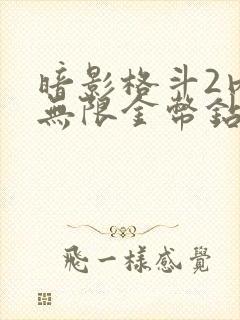 暗影格斗2
無限金幣鉆
飛一樣感覺